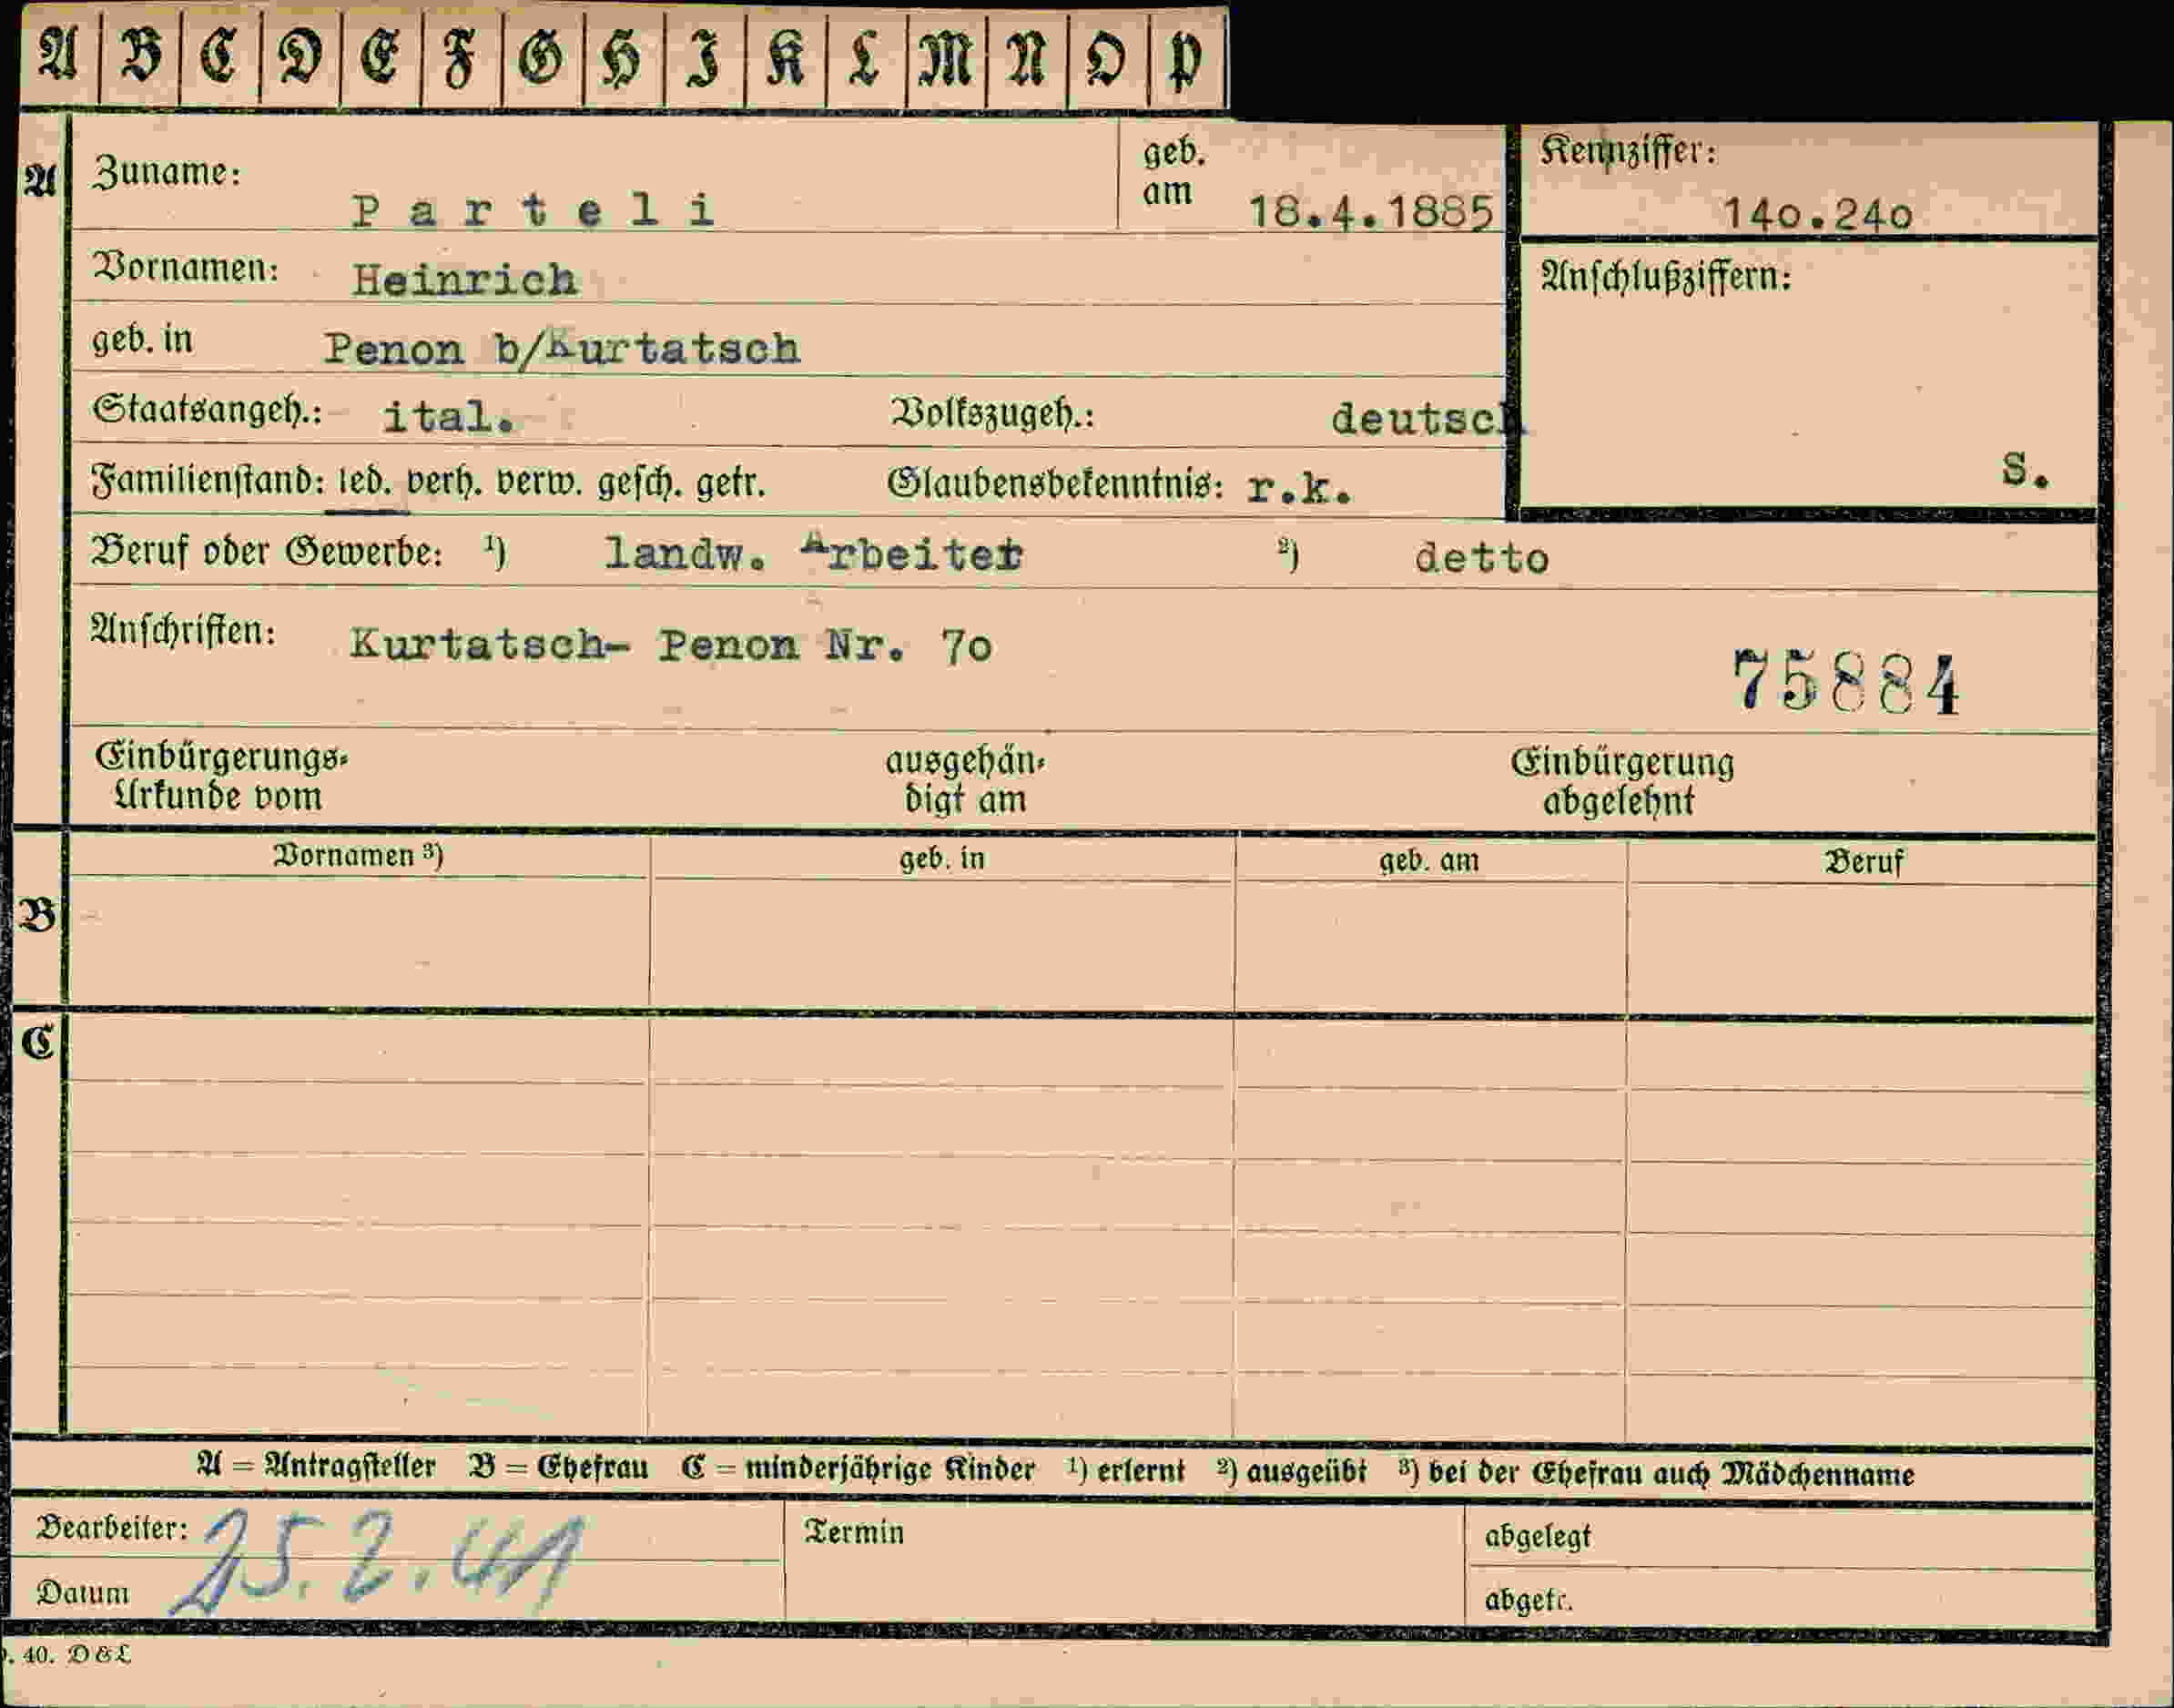 A B C D E F G H I K L M N O P
A Zuname: Parteli geb. am 18.4.1885 Kennziffer: 140.240
Vornamen: Heinrich Anschlußziffern:
geb. in Penon b/Kurtatsch
Staatsangeh.: ital. Volkszugeh.: deutsch
Familienstand: led. verh. verw. gesch. getr. Glaubensbekenntnis: r.k. S.
Beruf oder Gewerbe: ¹) landw. Arbeiter ²) detto
Anschriften: Kurtatsch- Penon Nr. 7o
75884
Einbürgerungs- ausgehän- Einbürgerung
Urkunde vom digt am abgelehnt
Vornamen ³) geb. in geb. am Beruf
B
C
A = Antragsteller B = Ehefrau C = minderjährige Kinder ¹) erlernt ²) ausgeübt ³) bei der Ehefrau auch Mädchenname
Bearbeiter: Termin abgelegt
25.2.41
Datum abgetr.
. 40. D & L